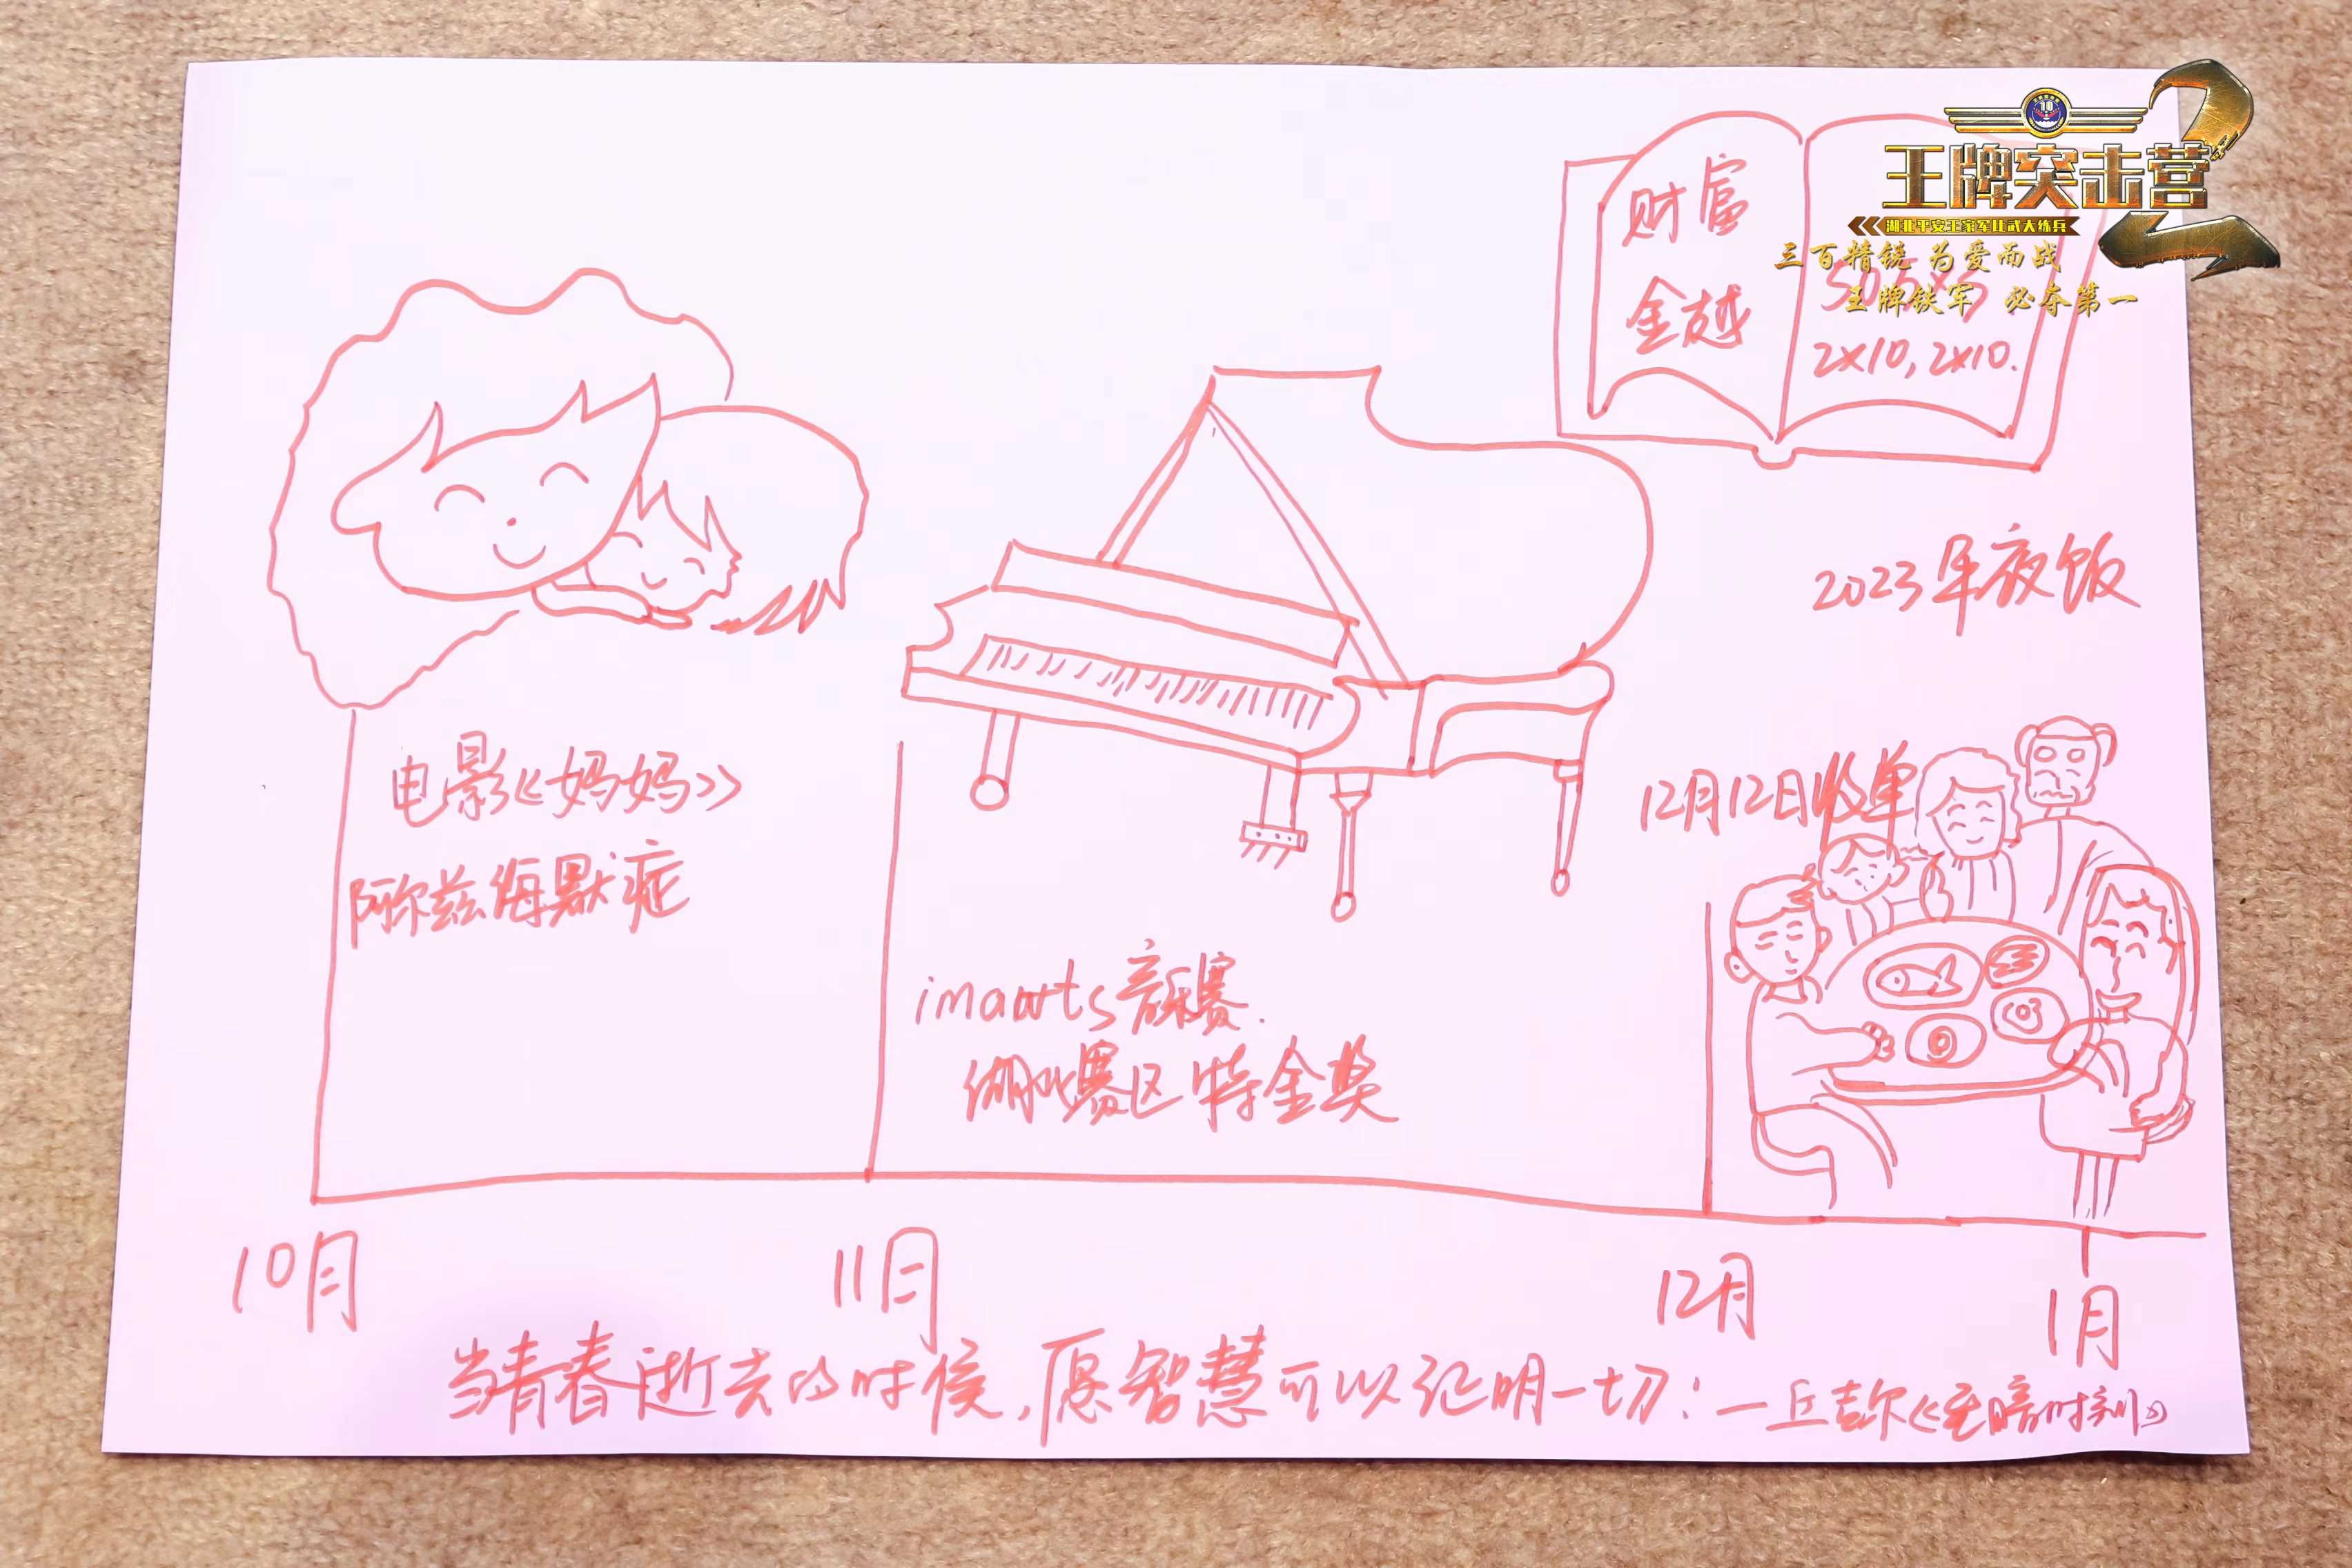 王牌突击营2
湖北平安王家军比武大练兵
三百精锐 为爱而战
王牌铁军 必夺第一
财富
金越
2×10, 2×10.
2023年夜饭
12月12日收单
电影《妈妈》
阿尔兹海默症
imaarts音乐赛.
湖北赛区特金奖
10月
11月
12月
1月
当青春逝去的时候,愿智慧可以证明一切:—丘吉尔《至暗时刻》